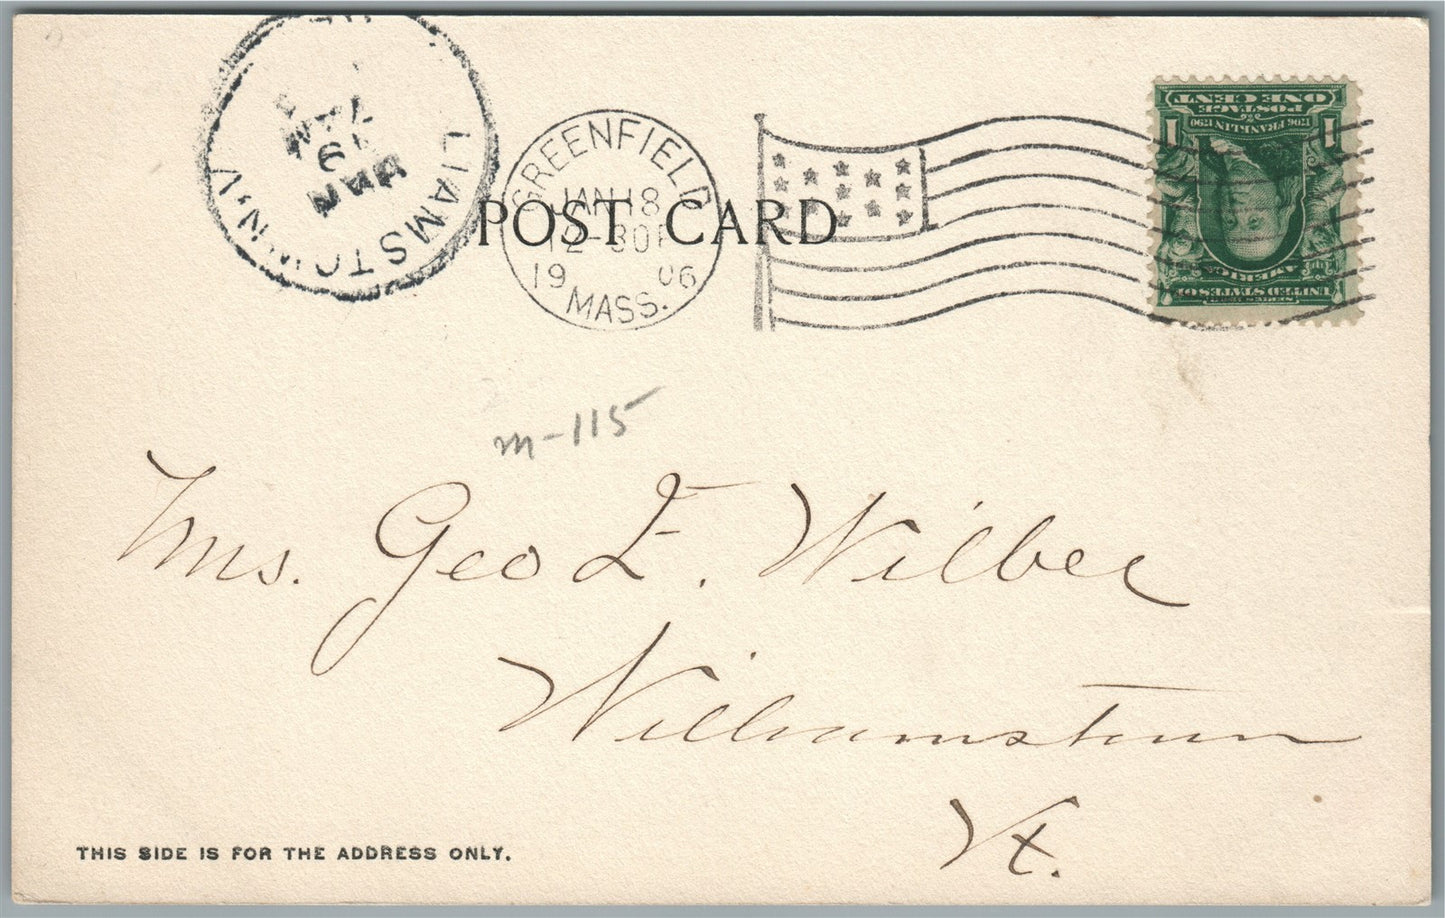 LIAMSTOWN, V
JAN
19
GREENFIELD
JAN 18
12-30P
19 06
MASS.
POST CARD
POSTAGE
ONE CENT
1 1
1706 FRANKLIN 1790
UNITED STATES OF
AMERICA
m-115
Mrs. Geo E. Wilber
Williamstown
Vt.
THIS SIDE IS FOR THE ADDRESS ONLY.